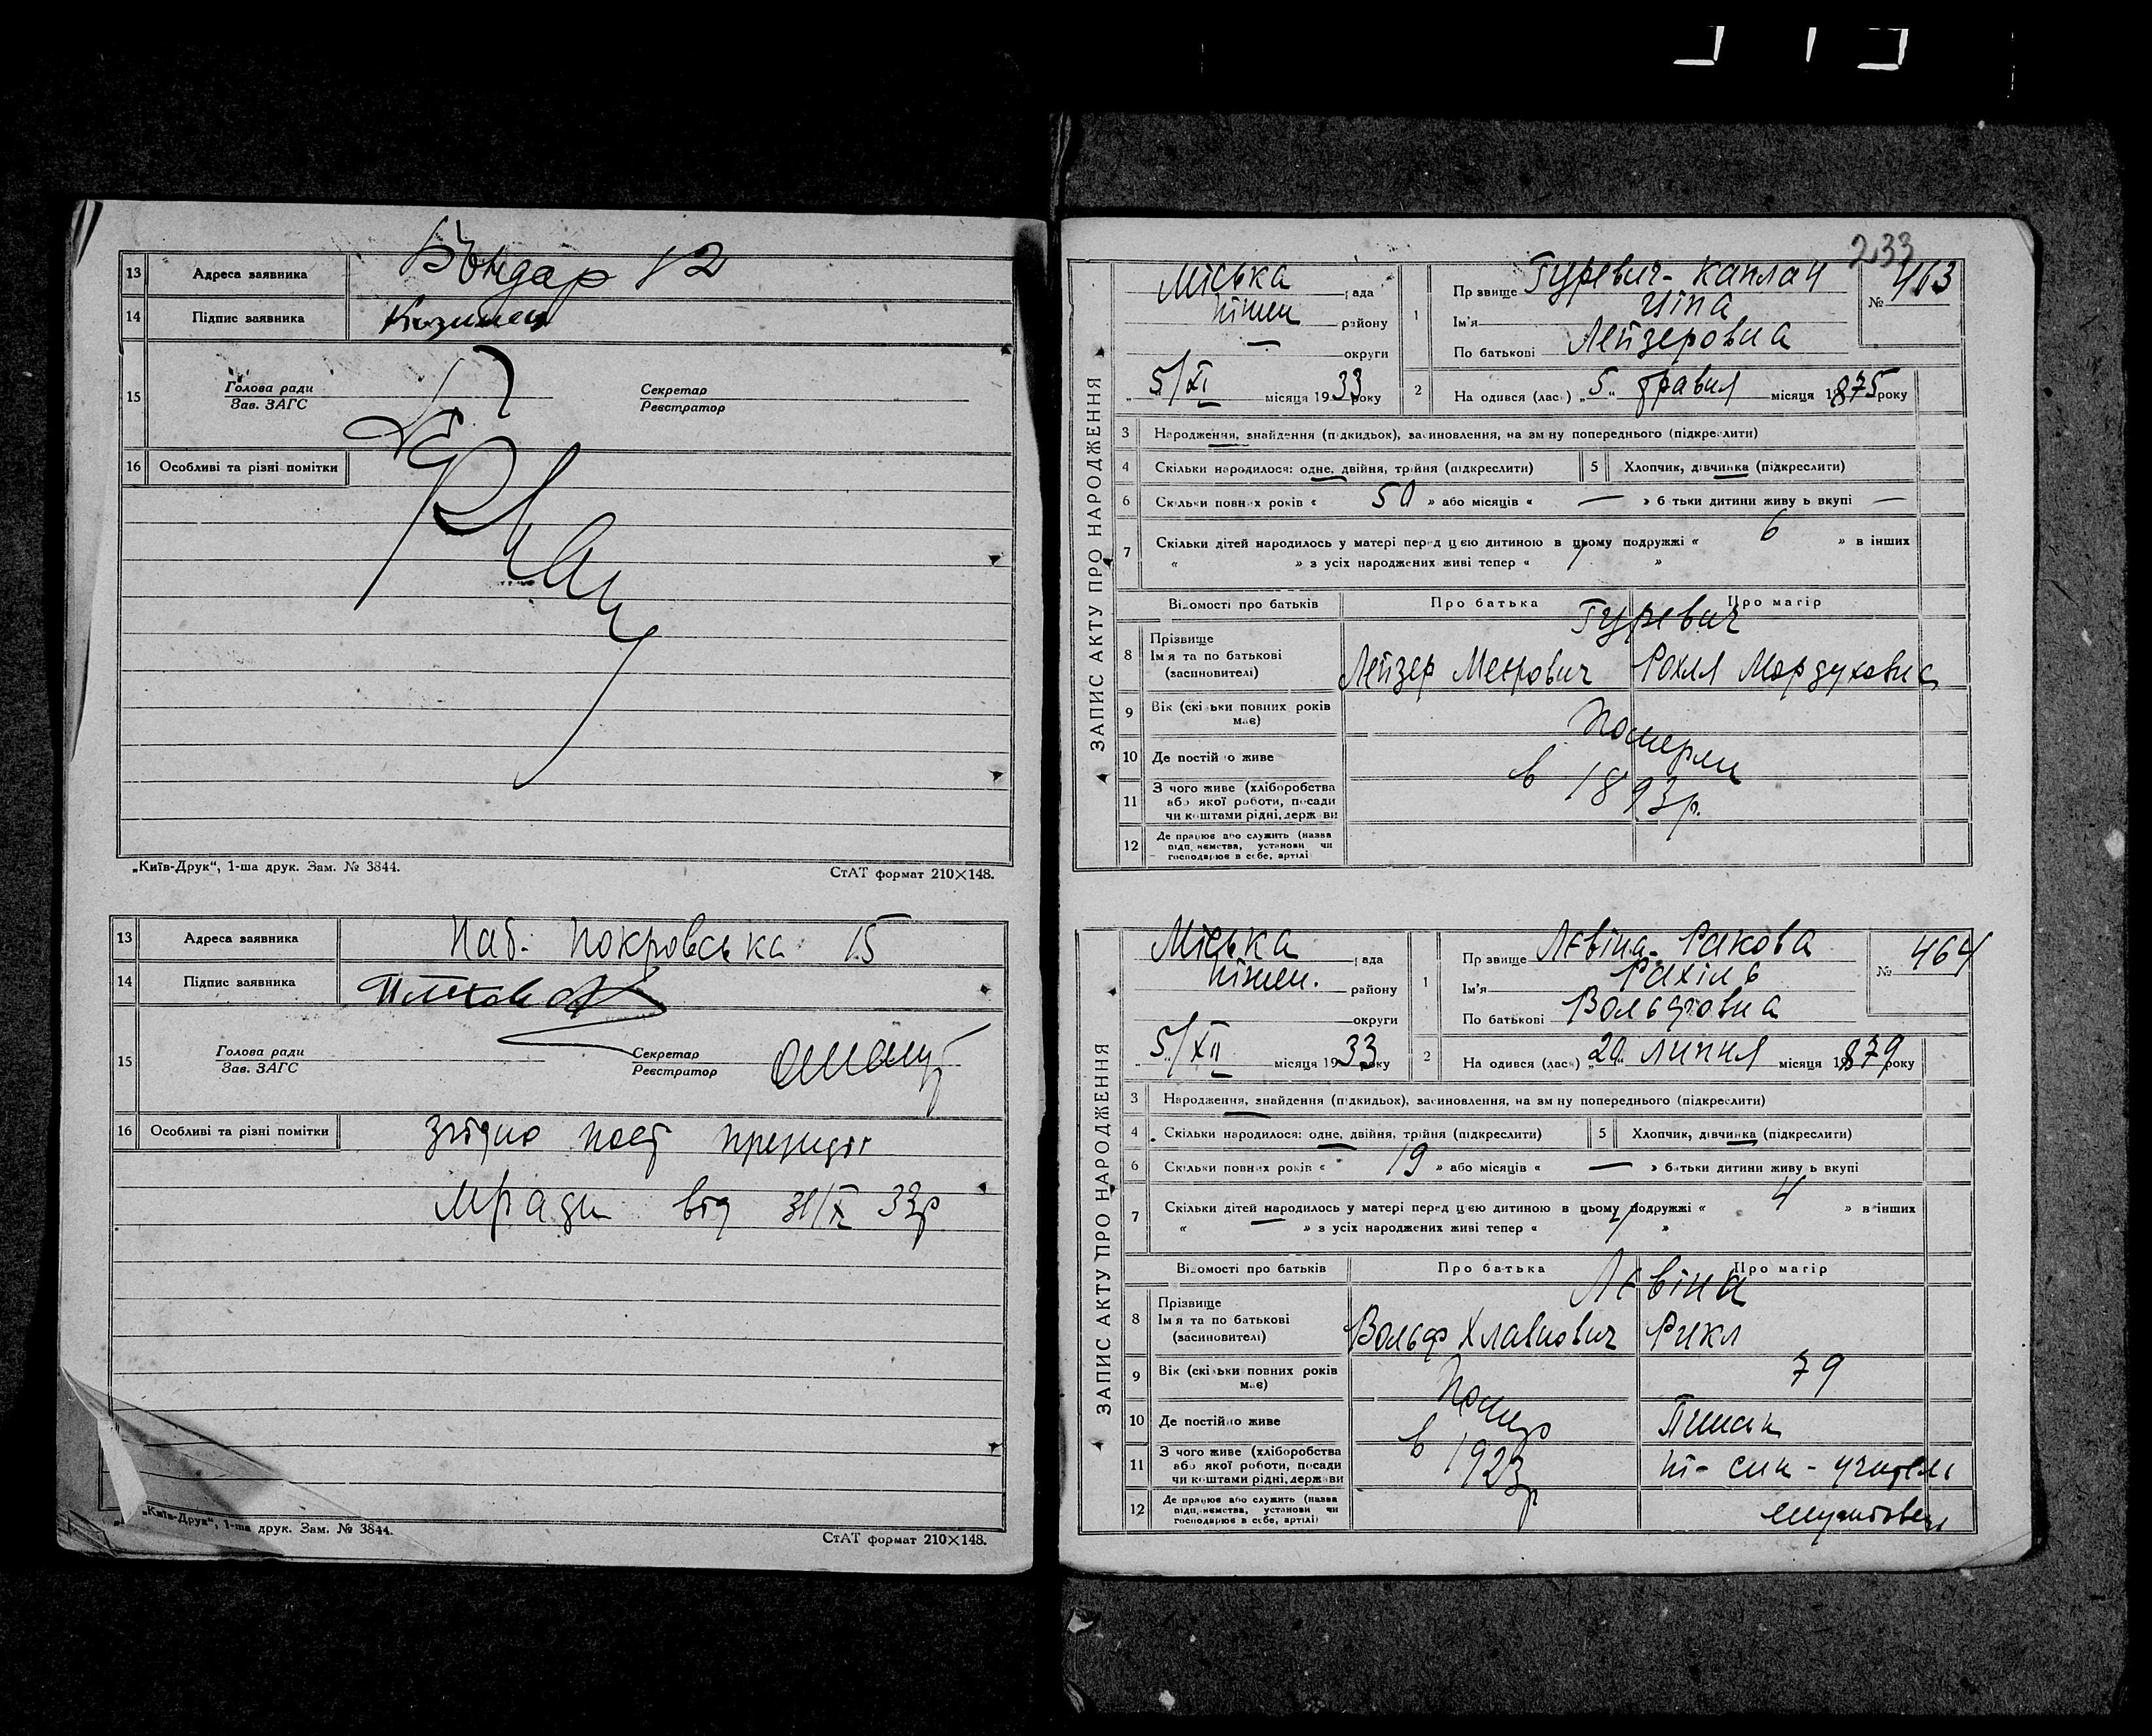 13 Адреса заявника Бондар 12
14 Підпис заявника
15 Голова ради Зав. ЗАГС Секретар Реєстратор
16 Особливі та різні помітки
„Київ-Друк“, 1-ша друк. Зам. № 3844. СтАТ формат 210×148.
13 Адреса заявника Наб. Покровська 15
14 Підпис заявника
15 Голова ради Зав. ЗАГС Секретар Реєстратор
16 Особливі та різні помітки Згідно
мради від 31/X 33р
„Київ-Друк“, 1-ша друк. Зам. № 3844.
СтАТ формат 210×148.
233
ЗАПИС АКТУ ПРО НАРОДЖЕННЯ
Міська рада
Ніжен району
округи
5/XI місяця 1933 року
1 Прізвище Гуревич-Каплан № 463
Ім'я Ціпа
По батькові Лейзеровна
2 Народився (лась) „5“ травня місяця 1875 року
3 Народження, знайдення (підкидьок), засиновлення, на зміну попереднього (підкреслити)
4 Скільки народилося: одне, двійня, трійня (підкреслити) 5 Хлопчик, дівчинка (підкреслити)
6 Скільки повних років « 50 » або місяців « — » батьки дитини живуть вкупі —
7 Скільки дітей народилось у матері перед цією дитиною в цьому подружжі « 6 » в інших
« » з усіх народжених живі тепер « »
Відомості про батьків Про батька Про матір
Гуревич
8 Прізвище Ім'я та по батькові (засиновителі) Лейзер Меєрович Рохля Мордуховна
9 Вік (скільки повних років має) Померли
10 Де постійно живе
в 1893р.
11 З чого живе (хліборобства або якої роботи, посади чи коштами рідні, держави
12 Де працює або служить (назва підприємства, установи чи господарює в себе, артілі)
ЗАПИС АКТУ ПРО НАРОДЖЕННЯ
Міська рада
Ніжен. району
округи
5/XII місяця 1933 року
1 Прізвище Лєвіна-Ракова № 464
Ім'я Рахіль
По батькові Вольфовна
2 Народився (лась) „20“ липня місяця 1879 року
3 Народження, знайдення (підкидьок), засиновлення, на зміну попереднього (підкреслити)
4 Скільки народилося: одне, двійня, трійня (підкреслити) 5 Хлопчик, дівчинка (підкреслити)
6 Скільки повних років « 19 » або місяців « — » батьки дитини живуть вкупі
7 Скільки дітей народилось у матері перед цією дитиною в цьому подружжі « 4 » в інших
« » з усіх народжених живі тепер « »
Відомості про батьків Про батька Про матір
Лєвіна
8 Прізвище Ім'я та по батькові (засиновителі) Вольф Хлавнович
9 Вік (скільки повних років має) Помер 79
10 Де постійно живе
в 1923р
11 З чого живе (хліборобства або якої роботи, посади чи коштами рідні, держави
12 Де працює або служить (назва підприємства, установи чи господарює в себе, артілі)